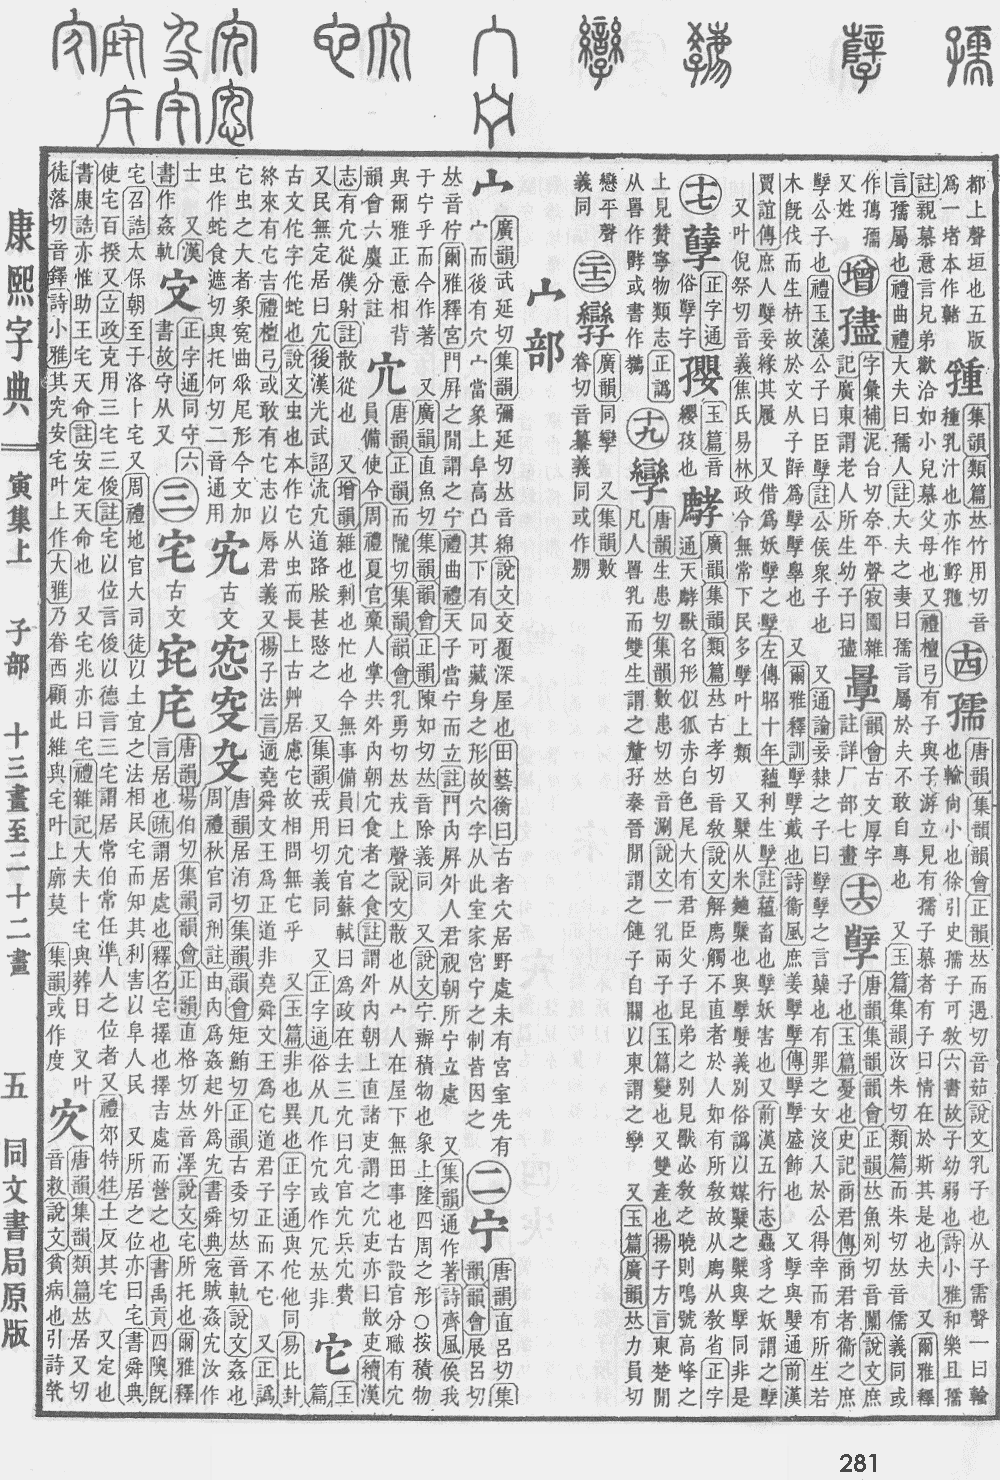 都上聲垣也五版
爲一堵本作䎝
集韻類篇𠀤竹用切音
種乳汁也亦作
孺 唐韻集韻韻會正韻𠀤而遇切音茹說文乳子也从子需聲一曰輸
也輸尙小也徐引史孺子可敎六書故子幼弱也詩小雅和樂且孺
註親慕意言兄弟歡洽如小兒慕父母也又禮檀弓有子與子游立見有孺子慕者有子曰情在於斯其是也夫 又爾雅釋
言孺屬也禮曲禮大夫曰孺人註大夫之妻曰孺言屬於夫不敢自專也 又玉篇集韻汝朱切類篇而朱切𠀤音儒義同或
作㺟孺
又姓
增 𡦃 字彙補泥台切奈平聲寂園雜
記廣東謂老人所生幼子曰𡦃
韻會古文厚字
註詳厂部七畫
孼 唐韻集韻韻會正韻𠀤魚列切音闑說文庶
子也玉篇憂也史記商君傳商君者衞之庶
孼公子也禮玉藻公子曰臣孼註公侯衆子也 又通論妾隸之子曰孼孼之言蘖也有罪之女沒入於公得幸而有所生若
木旣伐而生栫故於文从子辥爲孼孼辠也 又爾雅釋訓孼孼戴也詩衞風庶姜孼孼傳孼孼盛飾也 又孼與㜸通前漢
賈誼傳庶人孼妾緣其履 又借爲妖孼之孼左傳昭十年蘊利生孼註蘊畜也孼妖害也又前漢五行志蟲豸之妖謂之孼
又叶倪祭切音義焦氏易林政令無常下民多孼叶上類 又糱从米麯糱也與孼㜸義別俗譌以媒糱之糱與孼同非是
孽 正字通
俗孼字
玉篇音
纓孩也
廣韻集韻類篇𠀤古孝切音敎說文解廌觸不直者於人如有所敎故从廌从敎省正字
通天㸿獸名形似狐赤白色尾大有君臣父子昆弟之別見獸必敎之曉則鳴號高峰之
上見贊寧物類志正譌
从嘼作㸿或書作
孿 唐韻生患切集韻數患切𠀤音涮說文一乳兩子也玉篇變也又雙產也揚子方言東楚閒
凡人嘼乳而雙生謂之釐孖秦晉閒謂之僆子自關以東謂之孿 又玉篇廣韻𠀤力員切
戀平聲
義同
廣韻同孿 又集韻數
眷切音纂義同或作
宀部
宀 廣韻武延切集韻彌延切𠀤音綿說文交覆深屋也田藝衡曰古者穴居野處未有宮室先有
宀而後有穴宀當象上阜高凸其下有回可藏身之形故穴字从此室家宮宁之制皆因之
二 宁 唐韻直呂切集
韻韻會展呂切
𠀤音佇爾雅釋宮門屛之閒謂之宁禮曲禮天子當宁而立註門內屛外人君視朝所宁立處 又集韻通作著詩齊風俟我
于宁乎而今作著 又廣韻直魚切集韻韻會正韻陳如切𠀤音除義同 又說文宁辨積物也象上隆四周之形○按積物
與爾雅正意相背
韻會六麌分註
宂 唐韻正韻而隴切集韻韻會乳勇切𠀤戎上聲說文散也从宀人在屋下無田事也古設官分職有宂
員備使令周禮夏官藁人掌共外內朝宂食者之食註謂外內朝上直諸吏謂之宂吏亦曰散吏續漢
志有宂從僕射註散從也 又增韻雜也剩也忙也今無事備員曰宂官蘇軾曰爲政在去三宂曰宂官宂兵宂費
又民無定居曰宂後漢光武詔流宂道路朕甚愍之 又集韻戎用切義同 又正字通俗从几作宂或作冗𠀤非
它 玉
篇
古文佗字佗蛇也說文虫也本作它从虫而長上古艸居慮它故相問無它乎 又玉篇非也異也正字通與佗他同易比卦
終來有它吉禮檀弓或敢有它志以辱君義又揚子法言適堯舜文王爲正道非堯舜文王爲它道君子正而不它 又正譌
它虫之大者象冤曲𠂹尾形今文加
虫作蛇食遮切與托何切二音通用
宄 古文
唐韻居洧切集韻韻會矩鮪切正韻古委切𠀤音軌說文姦也
周禮秋官司刑註由內爲姦起外爲宄書舜典寇賊姦宄汝作
士 又漢
書作姦軌
正字通同守六
書故守从又
三 宅 古文
唐韻場伯切集韻韻會正韻直格切𠀤音澤說文宅所托也爾雅釋
言居也疏謂居處也釋名宅擇也擇吉處而營之也書禹貢四隩旣
宅召誥太保朝至于洛卜宅又周禮地官大司徒以土宜之法相民宅而知其利害以阜人民 又所居之位亦曰宅書舜典
使宅百揆又立政克用三宅三俊註宅以位言俊以德言三宅謂居常伯常任準人之位者又禮郊特牲土反其宅 又定也
書康誥亦惟助王宅天命註安定天命也 又宅兆亦曰宅禮雜記大夫卜宅與葬日 又叶
徒落切音鐸詩小雅其究安宅叶上作大雅乃眷西顧此維與宅叶上廓莫 集韻或作度
㝌 唐韻集韻類篇𠀤居又切
音救說文貧病也引詩煢
康熙字典
寅集上 子部 十三畫至二十二畫
五 同文書局原版
281